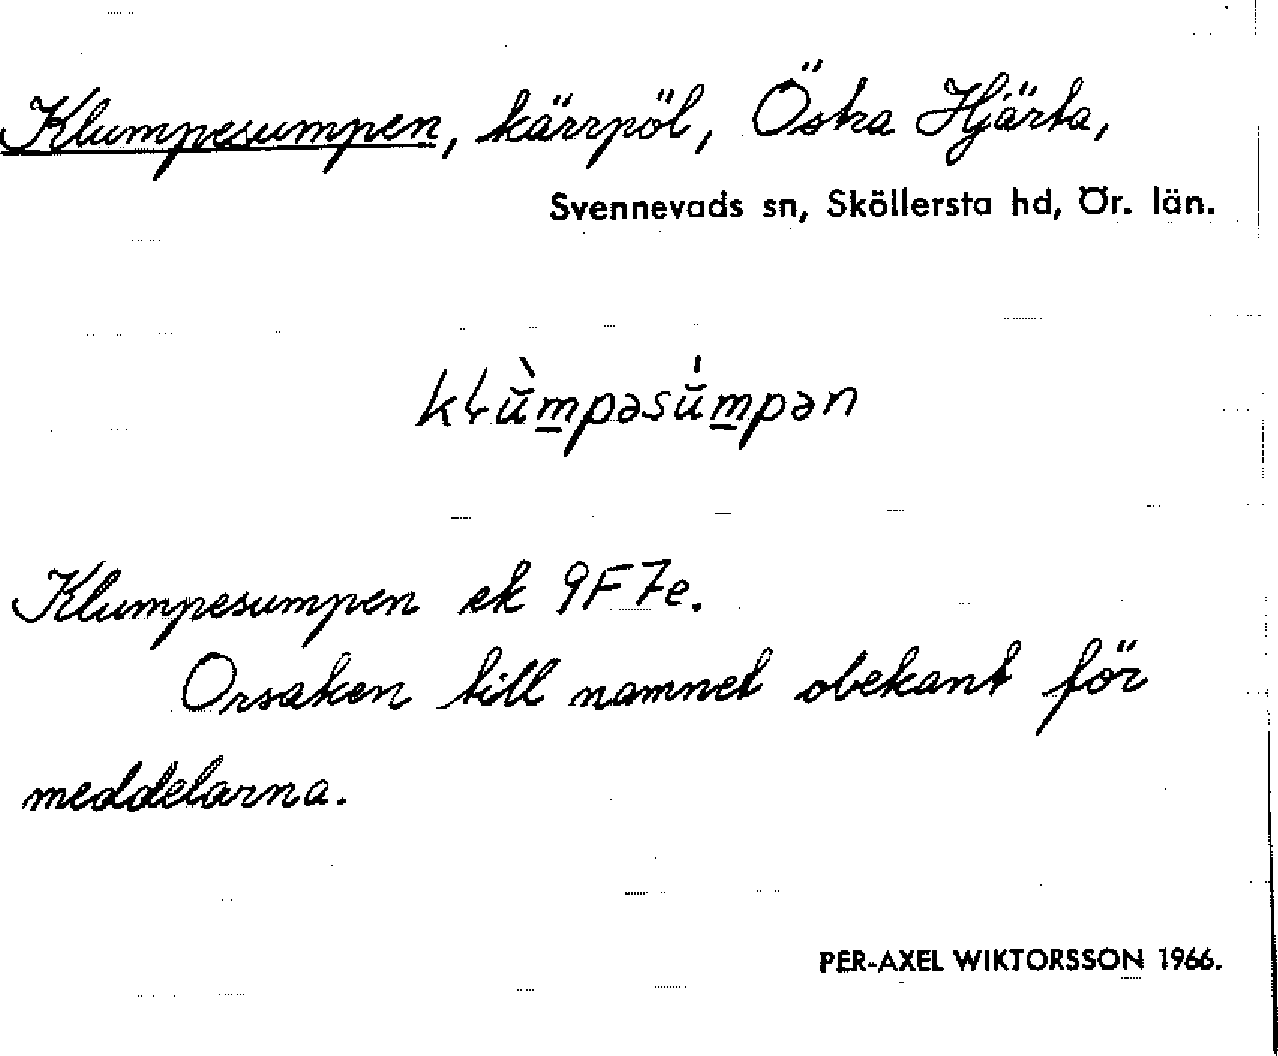 Klumpesumpen, kärrpöl, Östra Hjärta,
Svennevads sn, Sköllersta hd, Ör. län.
klùmpəsúmpən
Klumpesumpen ek 9F7e.
Orsaken till namnet obekant för
meddelarna.
PER-AXEL WIKTORSSON 1966.